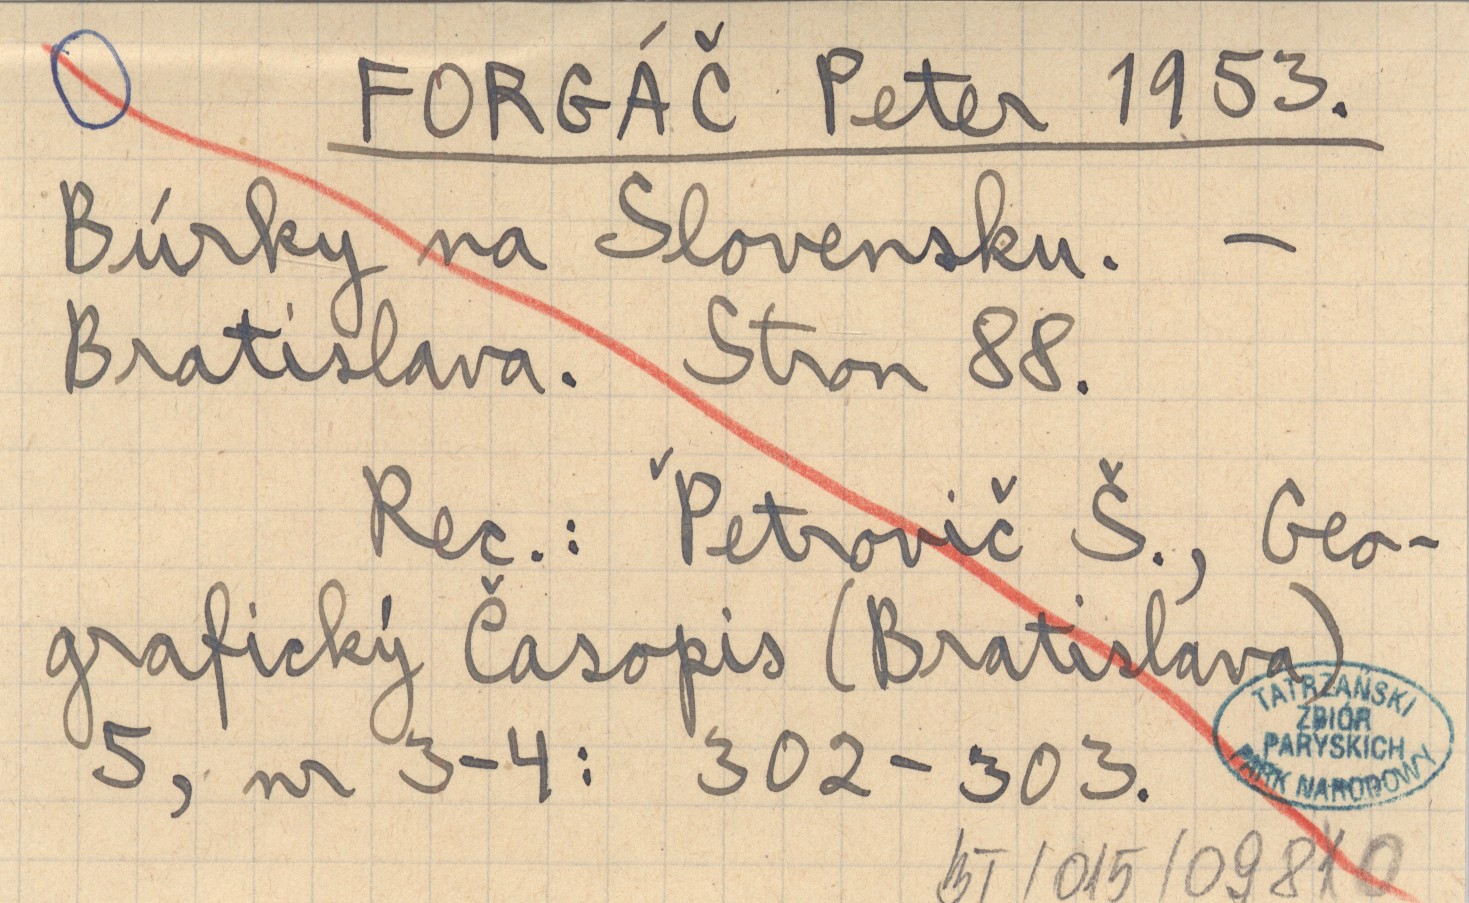 FORGÁČ Peter 1953.
Búrky na Slovensku. –
Bratislava. Stron 88.
Rec.: Petrovič Š., Geo-
grafický Časopis (Bratislava)
5, nr 3-4: 302-303.
TATRZAŃSKI
ZBIÓR
PARYSKICH
PARK NARODOWY
BT/015/09810